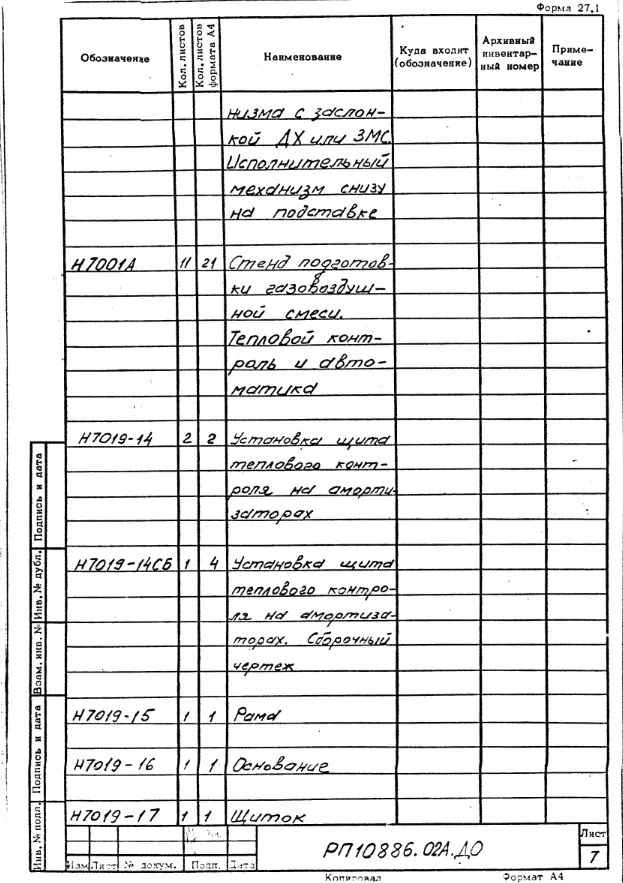 Форма 27.1
Обозначение Кол. листов Кол. листов формата А4 Наименование Куда входит (обозначение) Архивный инвентар-ный номер Приме-чание
низма с заслон-
кой ДХ или ЗМС.
Исполнительный
механизм снизу
на подставке
Н7001А 11 21 Стенд подготов-
ки газовоздуш-
ной смеси.
Тепловой конт-
роль и авто-
матика
Н7019-14 2 2 Установка щита
теплового конт-
роля на аморти-
заторах
Н7019-14СБ 1 4 Установка щита
теплового контро-
ля на амортиза-
торах. Сборочный
чертеж
Н7019-15 1 1 Рама
Н7019-16 1 1 Основание
Н7019-17 1 1 Щиток
Инв. № подл. Подпись и дата Взам. инв. № Инв. № дубл. Подпись и дата
Изм Лист № докум. Подп. Дата
РП10886.02А.ДО
Лист
7
Копировал Формат А4